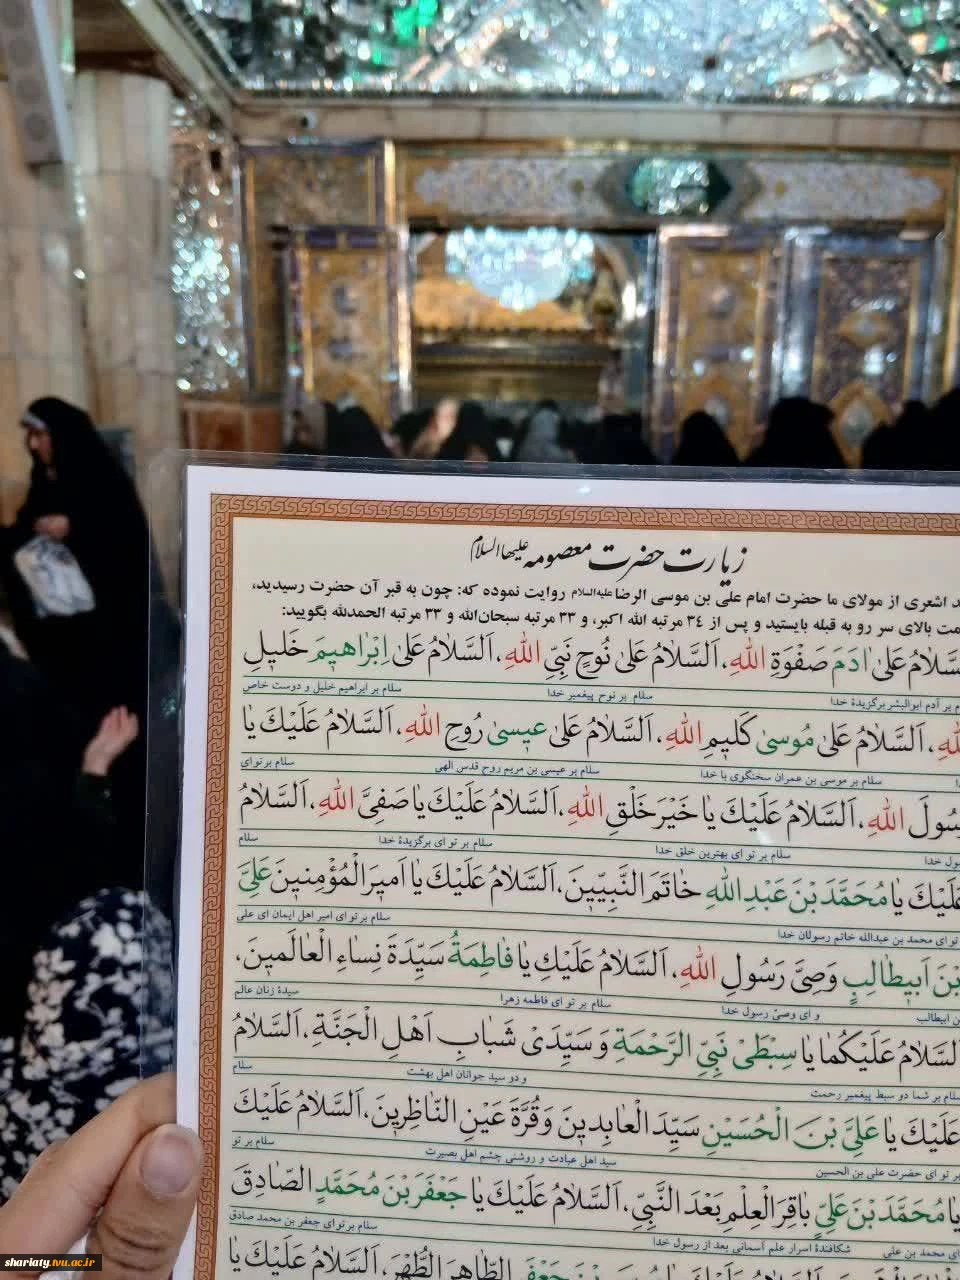 زیارت حضرت معصومه علیهاالسلام
د اشعری از مولای ما حضرت امام علی بن موسی الرضا علیه‌السلام روایت نموده که: چون به قبر آن حضرت رسیدید،
مت بالای سر رو به قبله بایستید و پس از ۳۴ مرتبه الله اکبر، و ۳۳ مرتبه سبحان‌الله و ۳۳ مرتبه الحمدلله بگویید:
سَّلٰامُ عَلیٰ اٰدَمَ صَفْوَةِ اللهِ، اَلسَّلٰامُ عَلیٰ نُوحٍ نَبِیِّ اللهِ، اَلسَّلٰامُ عَلیٰ اِبْرٰاهیمَ خَلیلِ
م بر آدم ابوالبشر برگزیدهٔ خدا سلام بر نوح پیغمبر خدا سلام بر ابراهیم خلیل و دوست خاص
اللهِ، اَلسَّلٰامُ عَلیٰ مُوسیٰ کَلیمِ اللهِ، اَلسَّلٰامُ عَلیٰ عیسیٰ رُوحِ اللهِ، اَلسَّلٰامُ عَلَیْكَ یٰا
سلام بر موسی بن عمران سخنگوی با خدا سلام بر عیسی بن مریم روح قدس الهی سلام بر تو ای
سُولَ اللهِ، اَلسَّلٰامُ عَلَیْكَ یٰا خَیْرَ خَلْقِ اللهِ، اَلسَّلٰامُ عَلَیْكَ یٰا صَفِیَّ اللهِ، اَلسَّلٰامُ
سول خدا سلام بر تو ای بهترین خلق خدا سلام بر تو ای برگزیدهٔ خدا سلام
عَلَیْكَ یٰا مُحَمَّدَ بْنَ عَبْدِ اللهِ خٰاتَمَ النَّبِیّینَ، اَلسَّلٰامُ عَلَیْكَ یٰا اَمیرَ الْمُؤْمِنینَ عَلِیَّ
تو ای محمد بن عبدالله خاتم رسولان خدا سلام بر تو ای امیر اهل ایمان ای علی
بْنَ اَبیطٰالِبٍ وَصِیَّ رَسُولِ اللهِ، اَلسَّلٰامُ عَلَیْكِ یٰا فٰاطِمَةُ سَیِّدَةَ نِسٰاءِ الْعٰالَمینَ،
بن ابیطالب و ای وصیّ رسول خدا سلام بر تو ای فاطمه زهرا سیدهٔ زنان عالم
اَلسَّلٰامُ عَلَیْکُمٰا یٰا سِبْطَیْ نَبِیِّ الرَّحْمَةِ وَ سَیِّدَیْ شَبٰابِ اَهْلِ الْجَنَّةِ، اَلسَّلٰامُ
سلام بر شما دو سبط پیغمبر رحمت و دو سید جوانان اهل بهشت سلام
عَلَیْكَ یٰا عَلِیَّ بْنَ الْحُسَیْنِ سَیِّدَ الْعٰابِدینَ وَ قُرَّةَ عَیْنِ النّٰاظِرینَ، اَلسَّلٰامُ عَلَیْكَ
بر تو ای حضرت علی بن الحسین سید اهل عبادت و روشنی چشم اهل بصیرت سلام بر تو
یٰا مُحَمَّدَ بْنَ عَلِیٍّ بٰاقِرَ الْعِلْمِ بَعْدَ النَّبِیِّ، اَلسَّلٰامُ عَلَیْكَ یٰا جَعْفَرَ بْنَ مُحَمَّدٍ الصّٰادِقَ
ای محمد بن علی شکافندهٔ اسرار علم آسمانی بعد از رسول خدا سلام بر تو ای جعفر بن محمد صادق
بْنَ جَعْفَرٍ الطّٰاهِرَ الطُّهْرَ، اَلسَّلٰامُ عَلَیْكَ یٰا
shariaty.tvu.ac.ir